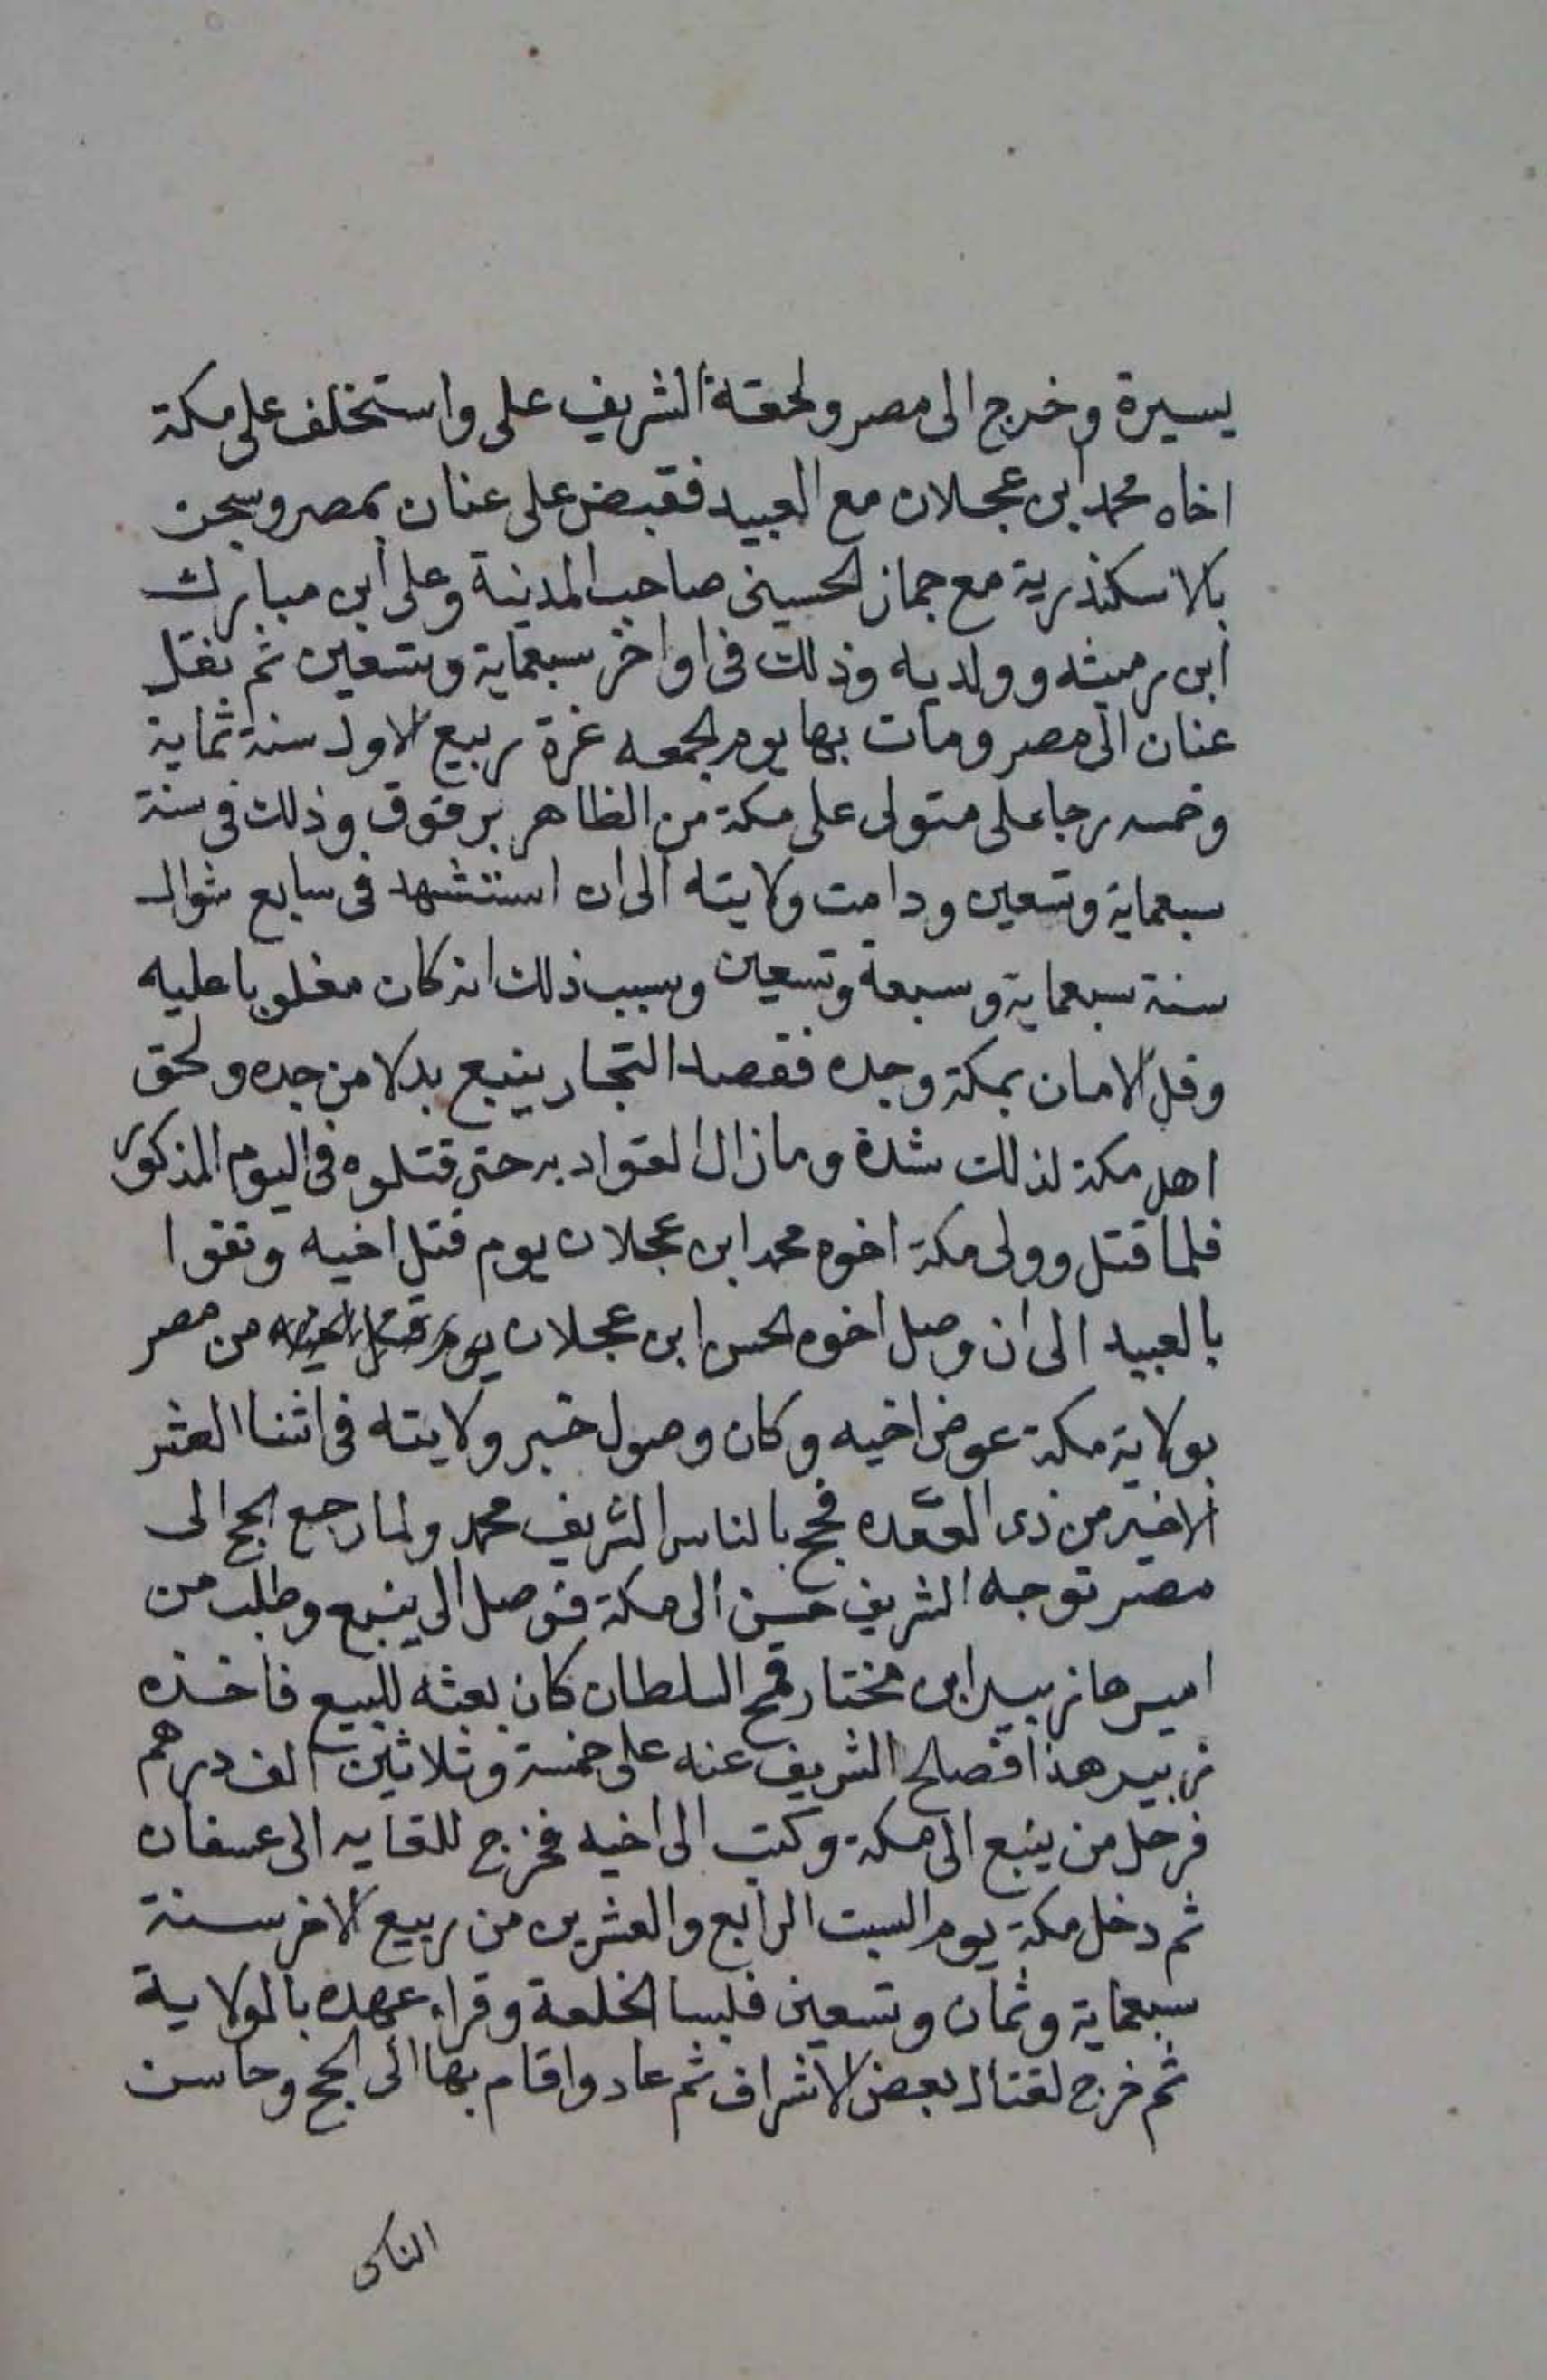 يسيرة وخرج الى مصر ولحقة الشريف على واستخلف على مكة
اخاه محمد ابن عجلان مع العبيد فقبض على عنان بمصر وسجن
بالاسكندرية مع جماز الحسينى صاحب المدينة وعلى ابن مبارك
ابن رميثه وولديه وذلك فى اواخر سبعماية وتسعين ثم نقل
عنان الى مصر ومات بها يوم الجمعه غرة ربيع الاول سنة ثماية
وخمسه رجا على متولى على مكة من الظاهر برقوق وذلك فى سنة
سبعماية وتسعين ودامت ولايته الى ان استشهد فى سابع شوال
سنة سبعماية وسبعة وتسعين وسبب ذلك انه كان مغلوبا عليه
وقل الامان بمكة وجده فقصد التجار ينبع بدلا من جده ولحق
اهل مكة لذلك شدة ومازال القواد به حتى قتلوه فى اليوم المذكور
فلما قتل وولى مكة اخوه محمد ابن عجلان يوم قتل اخيه وتقوا
بالعبيد الى ان وصل اخوه الحسن ابن عجلان يوم قتل اخيه من مصر
بولاية مكة عوض اخيه وكان وصول خبر ولايته فى اثنا العشر
الاخير من ذى القعده فحج بالناس الشريف محمد ولما رجع الحج الى
مصر توجه الشريف حسن الى مكة فوصل الى ينبع وطلب من
اميرها زبير ابن مختار قمح السلطان كان بعثه للبيع فاخذه
زبير هذا فصالح الشريف عنه على خمسة وثلاثين الف درهم
فرحل من ينبع الى مكة وكتب الى اخيه فخرج للقايه الى عسفان
ثم دخل مكة يوم السبت الرابع والعشرين من ربيع الاخر سنة
سبعماية وثمان وتسعين فلبسا الخلعة وقراء عهده بالولاية
ثم خرج لقتال بعض الاشراف ثم عاد واقام بها الى الحج وحاسن